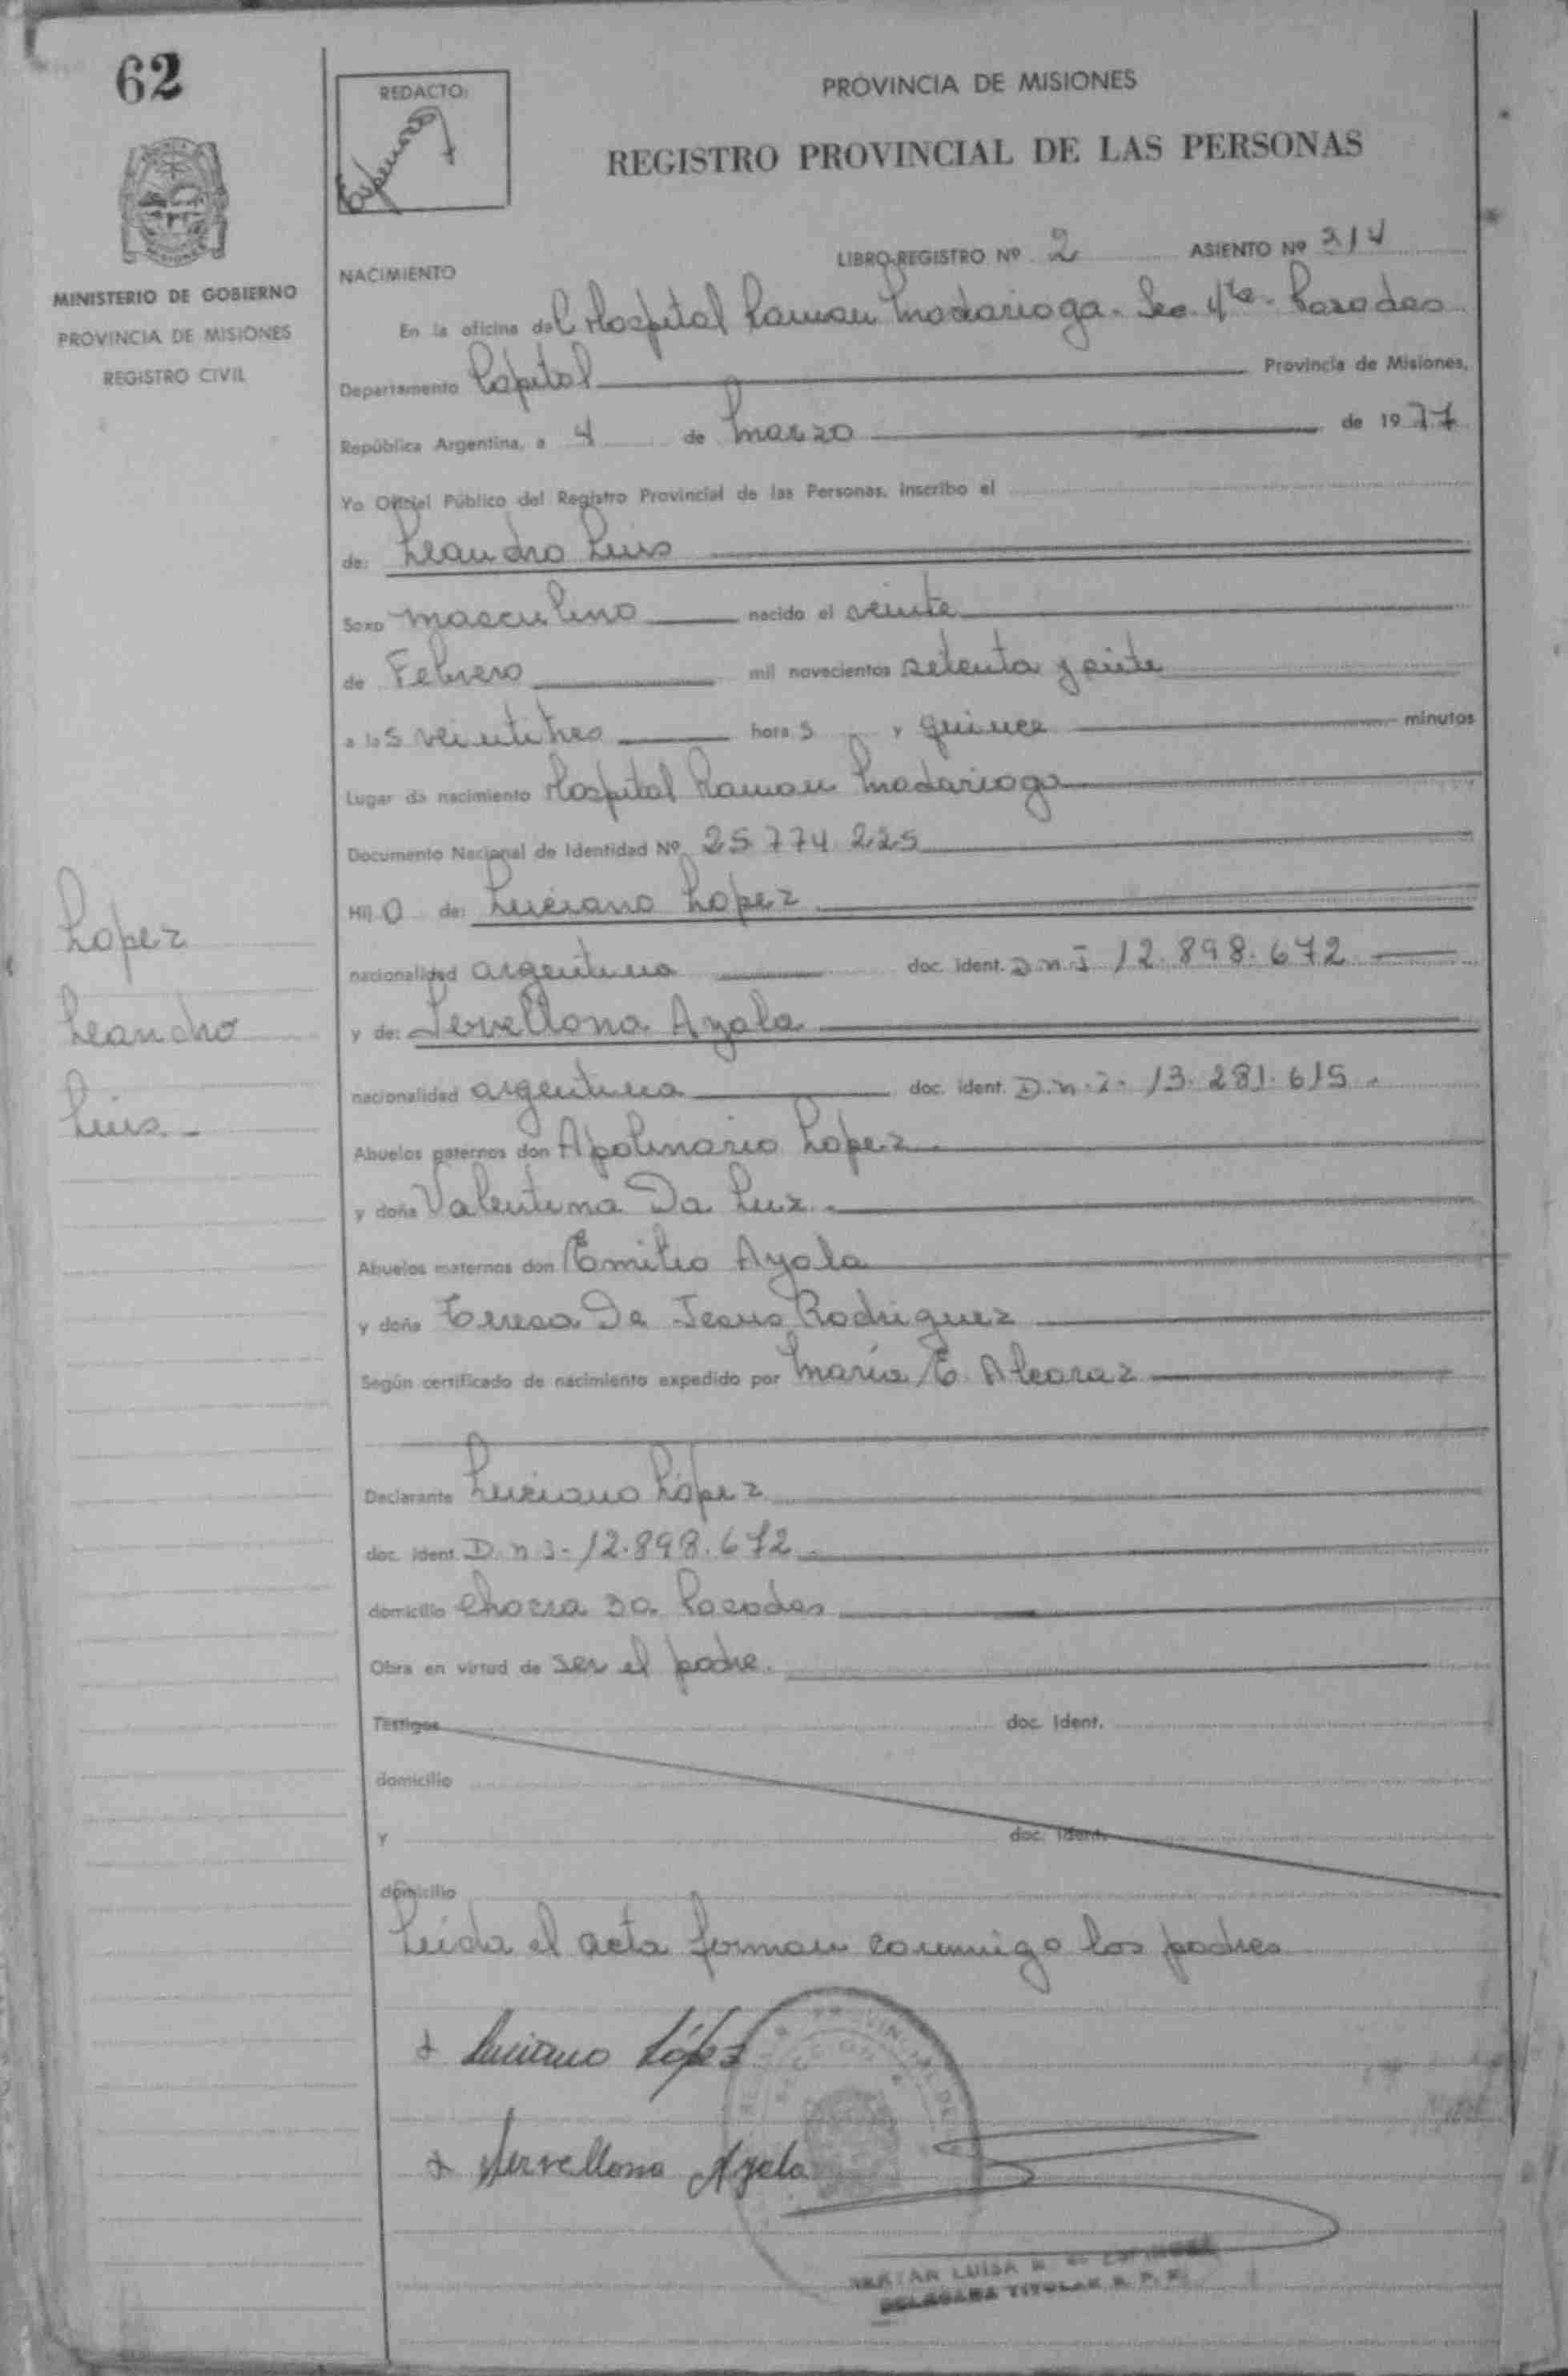 62
MINISTERIO DE GOBIERNO
PROVINCIA DE MISIONES
REGISTRO CIVIL
Lopez
Leandro
Luis
REDACTO:
PROVINCIA DE MISIONES
REGISTRO PROVINCIAL DE LAS PERSONAS
LIBRO-REGISTRO Nº 2 ASIENTO Nº 314
NACIMIENTO
En la oficina del Hospital Ramon Madariaga. Sec. 4ta. Posadas
Departamento Capital Provincia de Misiones,
República Argentina, a 4 de Marzo de 1977
Yo Oficial Público del Registro Provincial de las Personas, inscribo el
de: Leandro Luis
Sexo masculino nacido el veinte
de Febrero mil novecientos setenta y siete
a las veintitres horas y quince minutos
Lugar de nacimiento Hospital Ramon Madariaga
Documento Nacional de Identidad Nº 25.774.225
Hijo de: Luciano Lopez
nacionalidad argentina doc. ident. D.N.I 12.898.672
y de: Servellona Ayala
nacionalidad argentina doc. ident. D.N.I. 13.281.615.
Abuelos paternos don Apolinario Lopez
y doña Valentina Da Luz.
Abuelos maternos don Emilio Ayala
y doña Teresa De Jesus Rodriguez
Según certificado de nacimiento expedido por María E. Alcaraz
Declarante Luciano López
doc. ident. D.N.I. 12.898.672.
domicilio chacra 30. Posadas
Obra en virtud de ser el padre.
Testigos doc. ident.
domicilio
y doc. ident.
domicilio
Leida el acta firman conmigo los padres
+ Luciano López
+ Servellona Ayala
LUISA
TITULAR R. P. P.